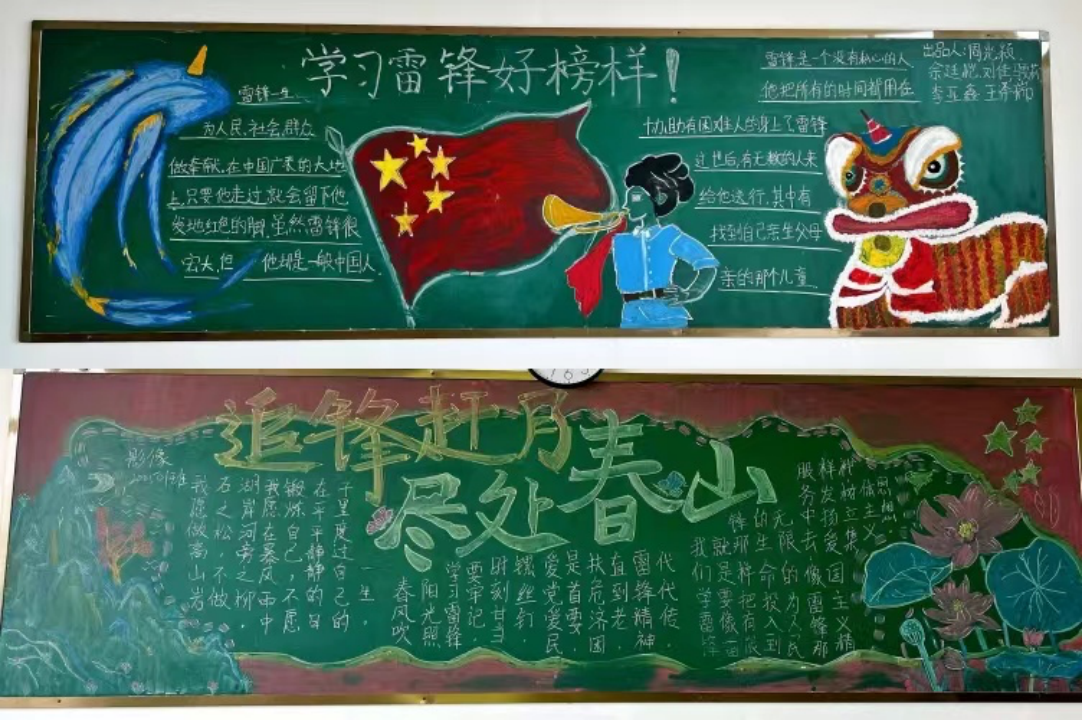 学习雷锋好榜样!
雷锋一生
为人民,社会,群众
做奉献,在中国广袤的大地
上,只要他走过,就会留下他
发地红色的脚,虽然雷锋很
宏大,但 他却是一般中国人.
雷锋是一个没有私心的人
他把所有的时间都用在
协助有困难人的身上了,雷锋
过世后,有无数的人来
给他送行,其中有
找到自己亲生父母
亲的那个儿童
出品人:周光颖
余廷艳 刘佳
追锋赶月
尽处春山
影像
我愿做高山岩
石之松,不做
湖岸河旁之柳,
我愿在暴风雨中
锻炼自己,不愿
在平平静静的日
子里度过自己的
一生。
春风吹
阳光照
学习雷锋
要牢记
时刻甘当
螺丝钉,
爱党爱民,
是首要,
扶危济困,
直到老,
雷锋精神
代代传.
我们学雷
就是要像
锋那样把有限
的生命投入到
无限的为人民
服务中去像雷锋那
样发扬爱国主义精
树立集
体主义
思想